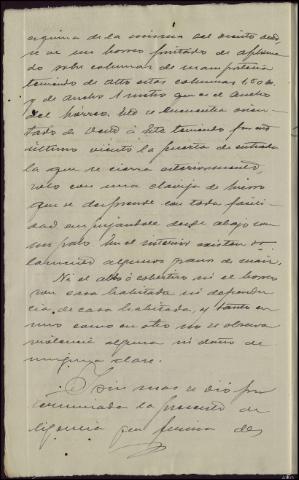 esquina de la misma del viento dcho,
se ve un horreo pintado de aplomado
do sobre columnas de mamposteria
teniendo de alto estas columnas 1,50 m,
y de ancho 1 metro que es el ancho
del horreo. Este se encuentra orien-
tado de Oeste á Este teniendo por este
último viento la puerta de entrada
la que se cierra exteriormente,
solo con una clavija de hierro
que se desprende con toda facili-
dad empujandole desde abajo con
un palo. En el interior existen so-
lamente algunos granos de maiz,
Ni el alto ó cobertizo ni el horreo
son casa habitada ni dependen-
cia de casa habitada, y tanto en
uno como en otro no se observa
violencia alguna ni daño de
ninguna clase.
Y sin mas se dió por
terminada la presente di-
ligencia que firma dho